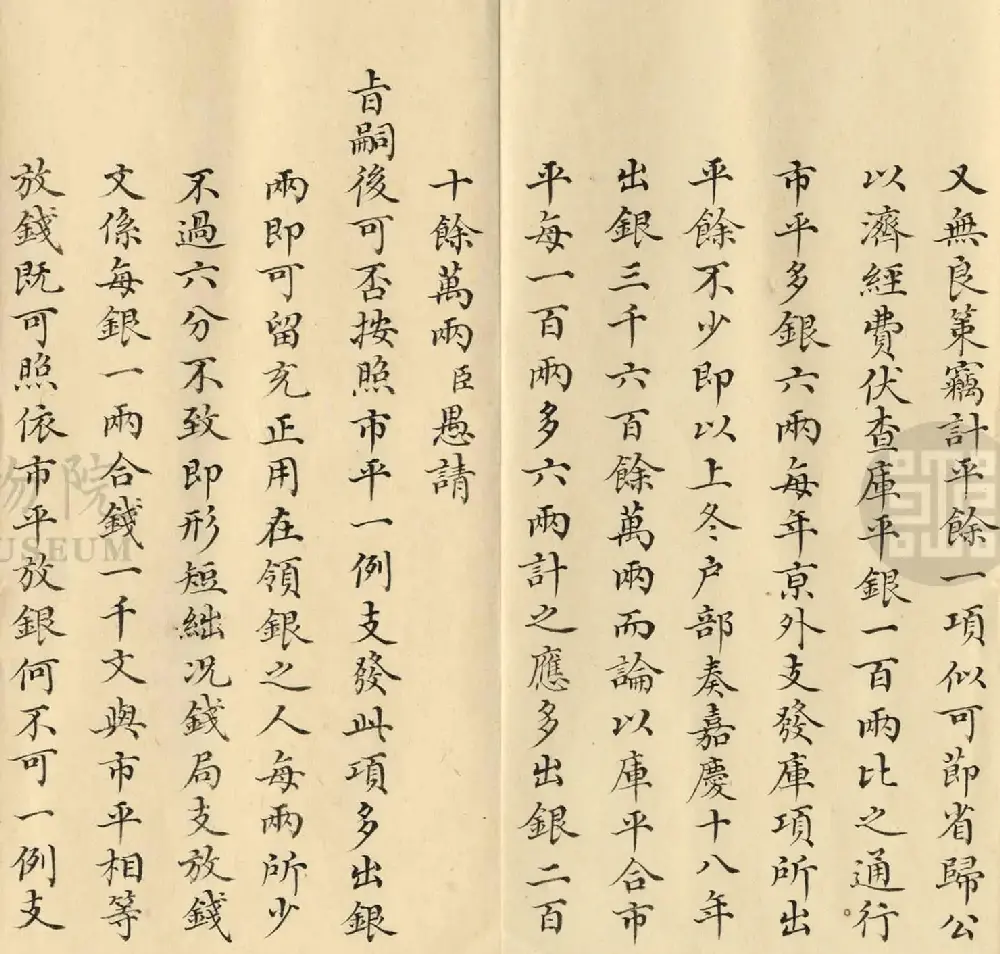 又無良策竊計平餘一項似可節省歸公
以濟經費伏查庫平銀一百兩比之通行
市平多銀六兩每年京外支發庫項所出
平餘不少即以上冬户部奏嘉慶十八年
出銀三千六百餘萬兩而論以庫平合市
平每一百兩多六兩計之應多出銀二百
十餘萬兩臣愚請
旨嗣後可否按照市平一例支發此項多出銀
兩即可留充正用在領銀之人每兩所少
不過六分不致即形短絀况錢局支放錢
文係每銀一兩合錢一千文與市平相等
放錢既可照依市平放銀何不可一例支
物院
MUSEUM